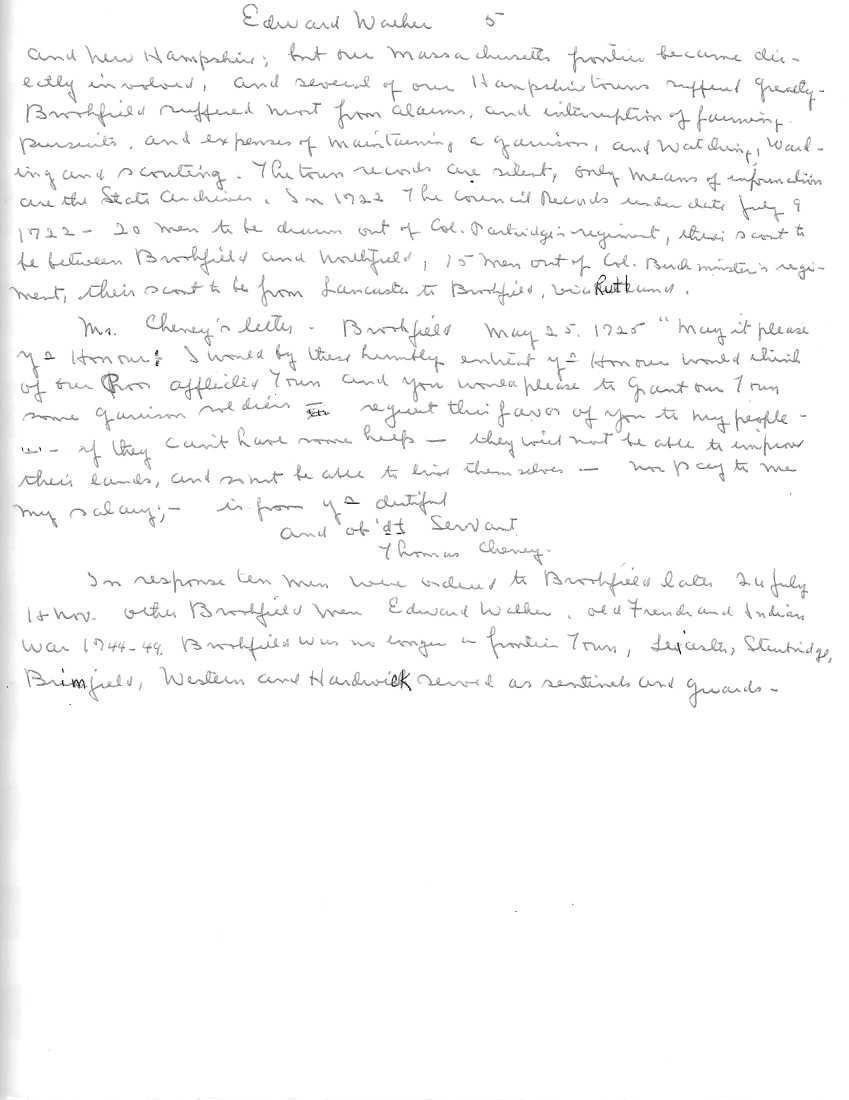 Edward Walker 5
and New Hampshire; but our Massachusetts frontier became dir-
ectly involved, and several of our Hampshire towns suffered greatly.
Brookfield suffered most from alarms, and interruption of farming
pursuits, and expenses of maintaining a garrison, and watching, ward-
ing and scouting. The town records are silent, only means of information
are the State Archives. In 1722 The Council Records under date July 9
1722 - 20 men to be drawn out of Col. Partridge's regiment, their scout to
be between Brookfield and Northfield, 15 men out of Col. Buckminster's regi-
ment, their scout to be from Lancaster to Brookfield, via Rutland.
Mr. Cheney's letter - Brookfield May 25. 1725 "May it please
ye Honour: I would by these humbly entreat ye Honour would think
of our Poor afflicted Town and you would please to grant our Town
some garrison soldiers request this favor of you to my people -
- if they can't have some help - they will not be able to improve
their lands, and so not be able to themselves - nor pay to me
my salary; - is from ye dutiful
and ob'dt Servant
Thomas Cheney.
In response ten men were ordered to Brookfield later 24 July
18 Nov. other Brookfield men Edward Walker. old French and Indian
War 1744-49. Brookfield was no longer a frontier Town, Leicester, Sturbridge,
Brimfield, Western and Hardwick served as sentinels and guards -